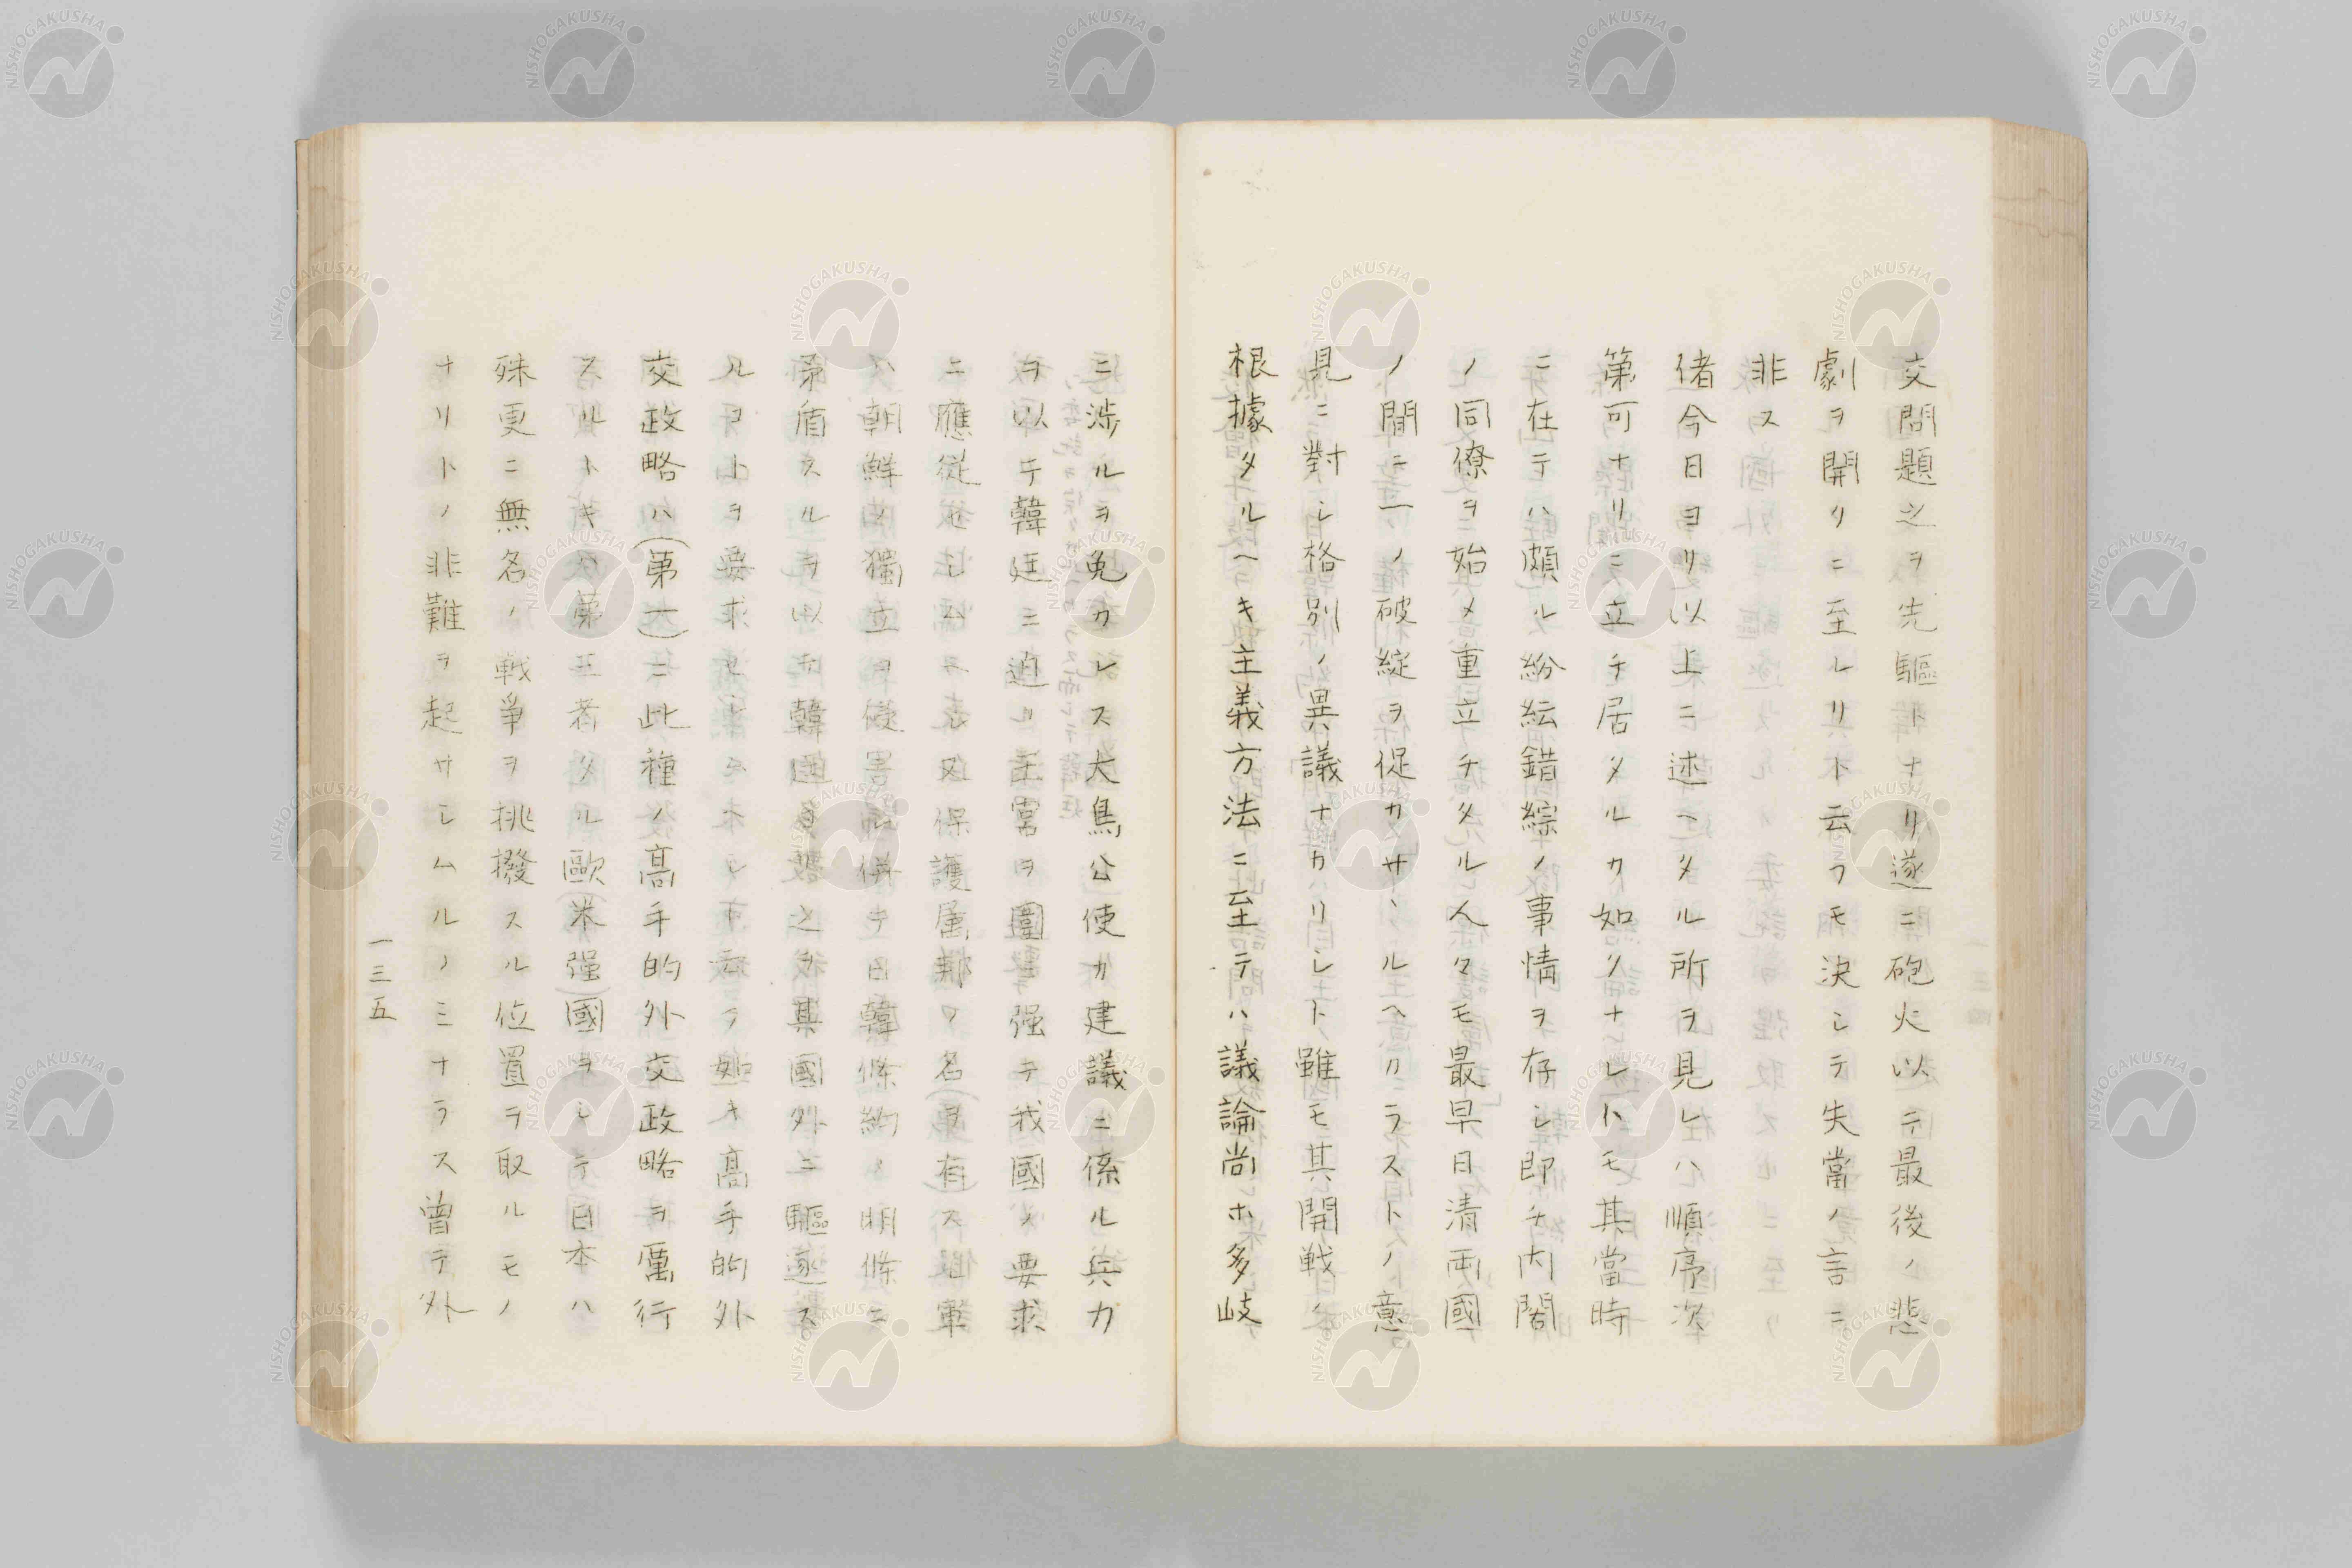 交問題之ヲ先驅トナリ遂ニ砲火以テ最後ノ悲
劇ヲ開クニ至レリト云フモ決シテ失當ノ言ニ
非ス
偖今日ヨリ以上ニ述ヘタル所ヲ見レハ順序次
第可ナリニ立チ居タルカ如クナレトモ其當時
ニ在テハ頗ル紛紜錯綜ノ事情ヲ存シ即チ内閣
ノ同僚ヲ始メ重立チタル人々モ最早日清両國
ノ間ニ一ノ破綻ヲ促カサヽルヘカラストノ意
見ニ對シ格別ノ異議ナカリシト雖モ其開戦ノ
根據タルヘキ主義方法ニ至テハ議論尚ホ多岐
ニ渉ルヲ免カレス大鳥公使カ建議ニ係ル兵力
ヲ以テ韓廷ニ迫リ王宮ヲ圍ミ强テ我國ノ要求
ニ應從セシム又保護属邦ノ名ヲ有スル軍
ハ朝鮮ノ獨立ヲ侵害シ併セテ日韓條約ノ明條ニ
矛盾スルヲ以テ韓廷之ヲ其國外ニ驅逐ス
ルコトヲ要求セシト云フ如キ高手的外
交政略ハ(第一)ニ此種ノ高手的外交政略ヲ厲行
スルトキハ第三者タル歐(米强)國ヲシテ日本ハ
殊更ニ無名ノ戦爭ヲ挑撥スル位置ヲ取ルモノ
ナリトノ非難ヲ起サシムルノミナラス曾テ外
一三五
NISHOGAKUSHA